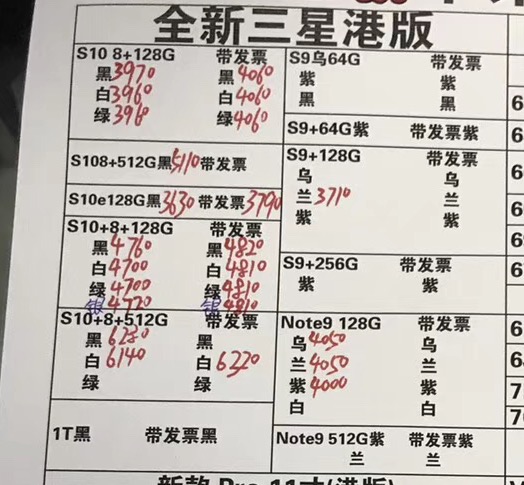 全新三星港版
S10 8+128G 带发票
黑3970 黑4060
白3960 白4060
绿3960 绿4060
S108+512G黑5110带发票
S10e128G黑3630 带发票3790
S10+8+128G 带发票
黑4760 黑4820
白4700 白4810
绿4700 绿4810
银4720 银4810
S10+8+512G 带发票
黑6280 黑
白6140 白6220
绿 绿
1T黑 带发票黑
S9乌64G 带发票
紫 紫
黑 黑
S9+64G紫 带发票紫
S9+128G 带发票
乌 乌
兰3710 兰
紫 紫
S9+256G 带发票
紫 紫
Note9 128G 带发票
乌4050 乌
兰4050 兰
紫4000 紫
白 白
Note9 512G紫 带发票紫
兰 兰
新款 Pro 11寸(港版)